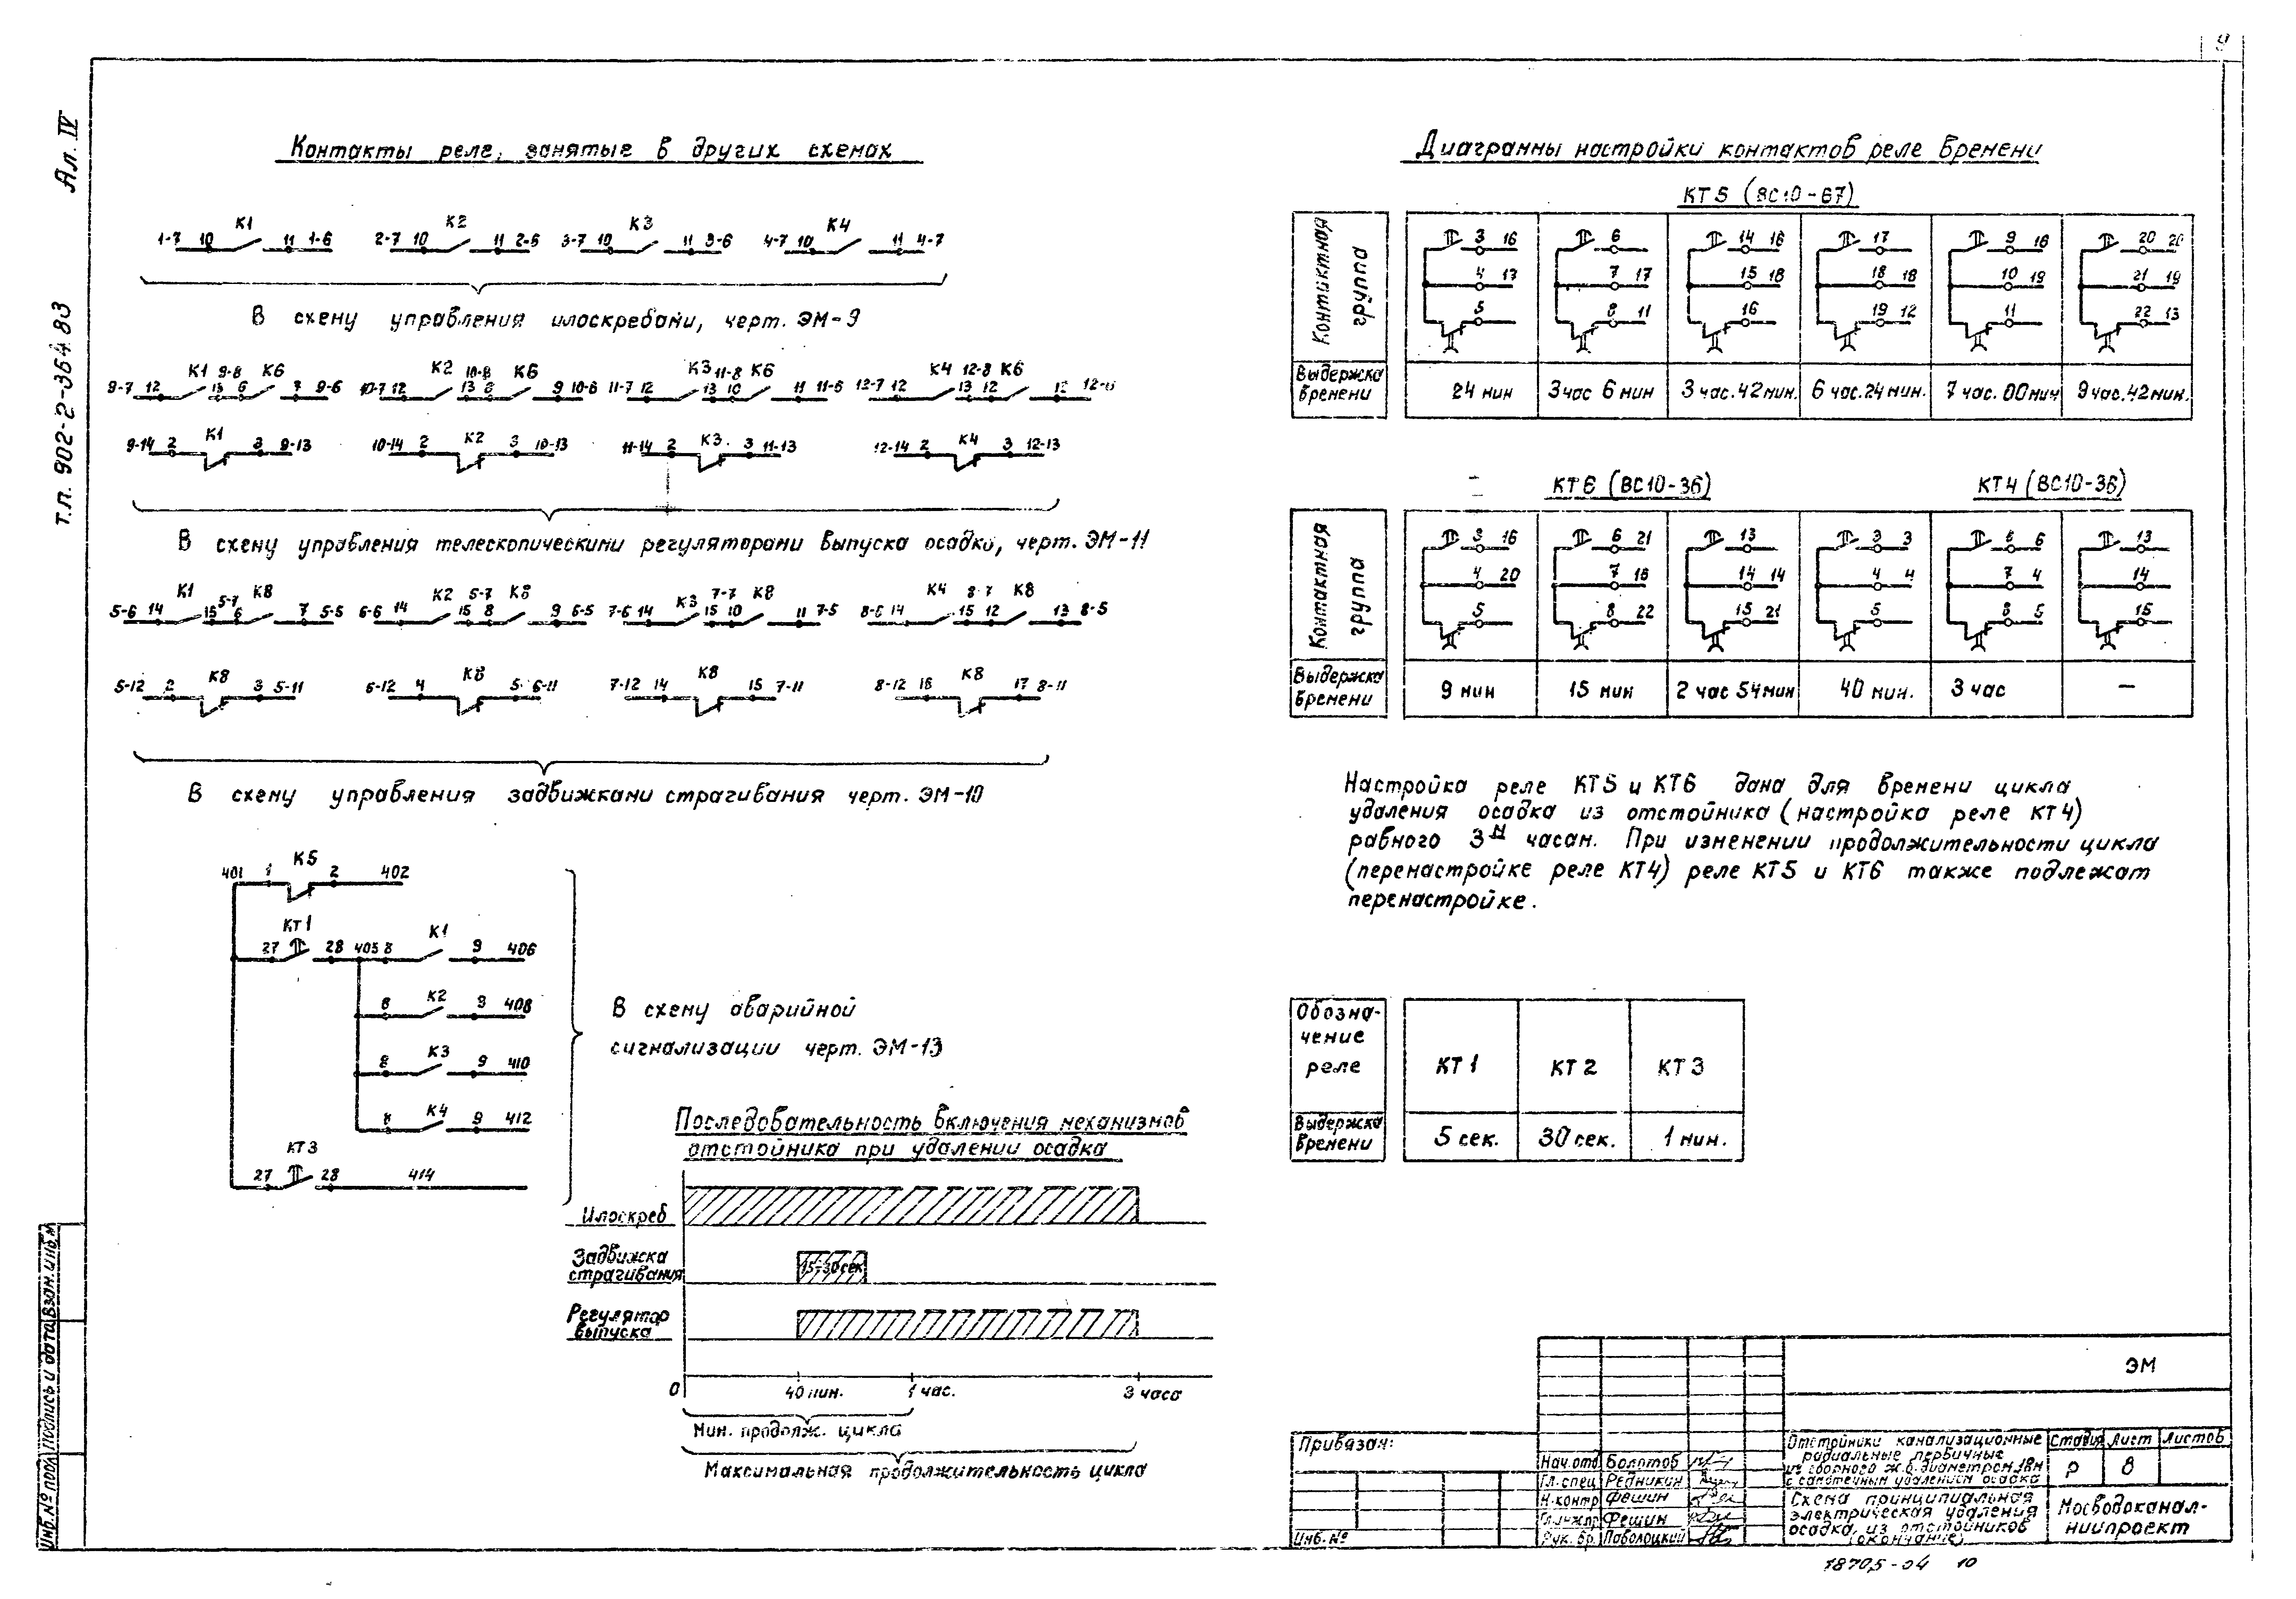 9
Ал. IV
т.п. 902-2-364.83
Контакты реле, занятые в других схемах
К1 К2 К3 К4
1-7 10 11 1-6 2-7 10 11 2-6 3-7 10 11 3-6 4-7 10 11 4-7
В схему управления илоскребами, черт. ЭМ-9
К1 9-8 К6 К2 10-8 К6 К3 11-8 К6 К4 12-8 К6
9-7 12 13 6 7 9-6 10-7 12 13 8 9 10-6 11-7 12 13 10 11 11-6 12-7 12 13 12
К1 К2 К3 К4
9-14 2 3 9-13 10-14 2 3 10-13 11-14 2 3 11-13 12-14 2 3 12-13
В схему управления телескопическими регуляторами выпуска осадка, черт. ЭМ-11
К1 5-7 К8 К2 5-7 К8 К3 7-7 К8 К4 8-7 К8
5-6 14 15 6 7 5-5 6-6 14 15 8 9 6-5 7-6 14 15 10 11 7-5 8-6 14 15 12 13 8-5
К8 К8 К8 К8
5-12 2 3 5-11 6-12 4 5 6-11 7-12 14 15 7-11 8-12 16 17 8-11
В схему управления задвижками страгивания черт. ЭМ-10
К5
401 1 2 402
КТ1 К1
27 28 405 8 9 406
К2
8 9 408
К3
8 9 410
К4
8 9 412
КТ3
27 28 414
В схему аварийной
сигнализации черт. ЭМ-13
Последовательность включения механизмов
отстойника при удалении осадка
Илоскреб
Задвижка
страгивания
15-30 сек
Регулятор
выпуска
0 40 мин. 1 час. 3 часа
Мин. продолж. цикла
Максимальная продолжительность цикла
Диаграммы настройки контактов реле времени
КТ5 (ВС10-67)
Контактная
группа
3 16 6 14 16 17 9 18 20 20
4 17 7 17 15 18 18 18 10 19 21 19
5 8 11 16 19 12 11 22 13
Выдержка
времени
24 мин 3 час 6 мин 3 час. 42 мин. 6 час. 24 мин. 7 час. 00 мин 9 час. 42 мин.
КТ6 (ВС10-36) КТ4 (ВС10-36)
Контактная
группа
3 16 6 21 13 3 3 6 6 13
4 20 7 18 14 14 4 4 7 4 14
5 8 22 15 21 5 8 5 15
Выдержка
времени
9 мин 15 мин 2 час 54 мин 40 мин. 3 час —
Настройка реле КТ5 и КТ6 дана для времени цикла
удаления осадка из отстойника (настройка реле КТ4)
равного 3м часам. При изменении продолжительности цикла
(перенастройке реле КТ4) реле КТ5 и КТ6 также подлежат
перенастройке.
Обозна-
чение
реле
КТ1 КТ2 КТ3
Выдержка
времени
5 сек. 30 сек. 1 мин.
ЭМ
Привязан:
Инв. №
Нач. отд Болотов
Гл. спец Редникин
Н. контр Фешин
Гл. инж. пр Фешин
Рук. бр. Паволоцкий
Отстойники канализационные
радиальные первичные
из сборного ж.б. диаметром 18м
с самотечным удалением осадка
Стадия Лист Листов
Р 8
Схема принципиальная
электрическая удаления
осадка из отстойников
(окончание)
Мосводоканал-
ниипроект
18705-04 10
Инв. № подл Подпись и дата Взам. инв. №